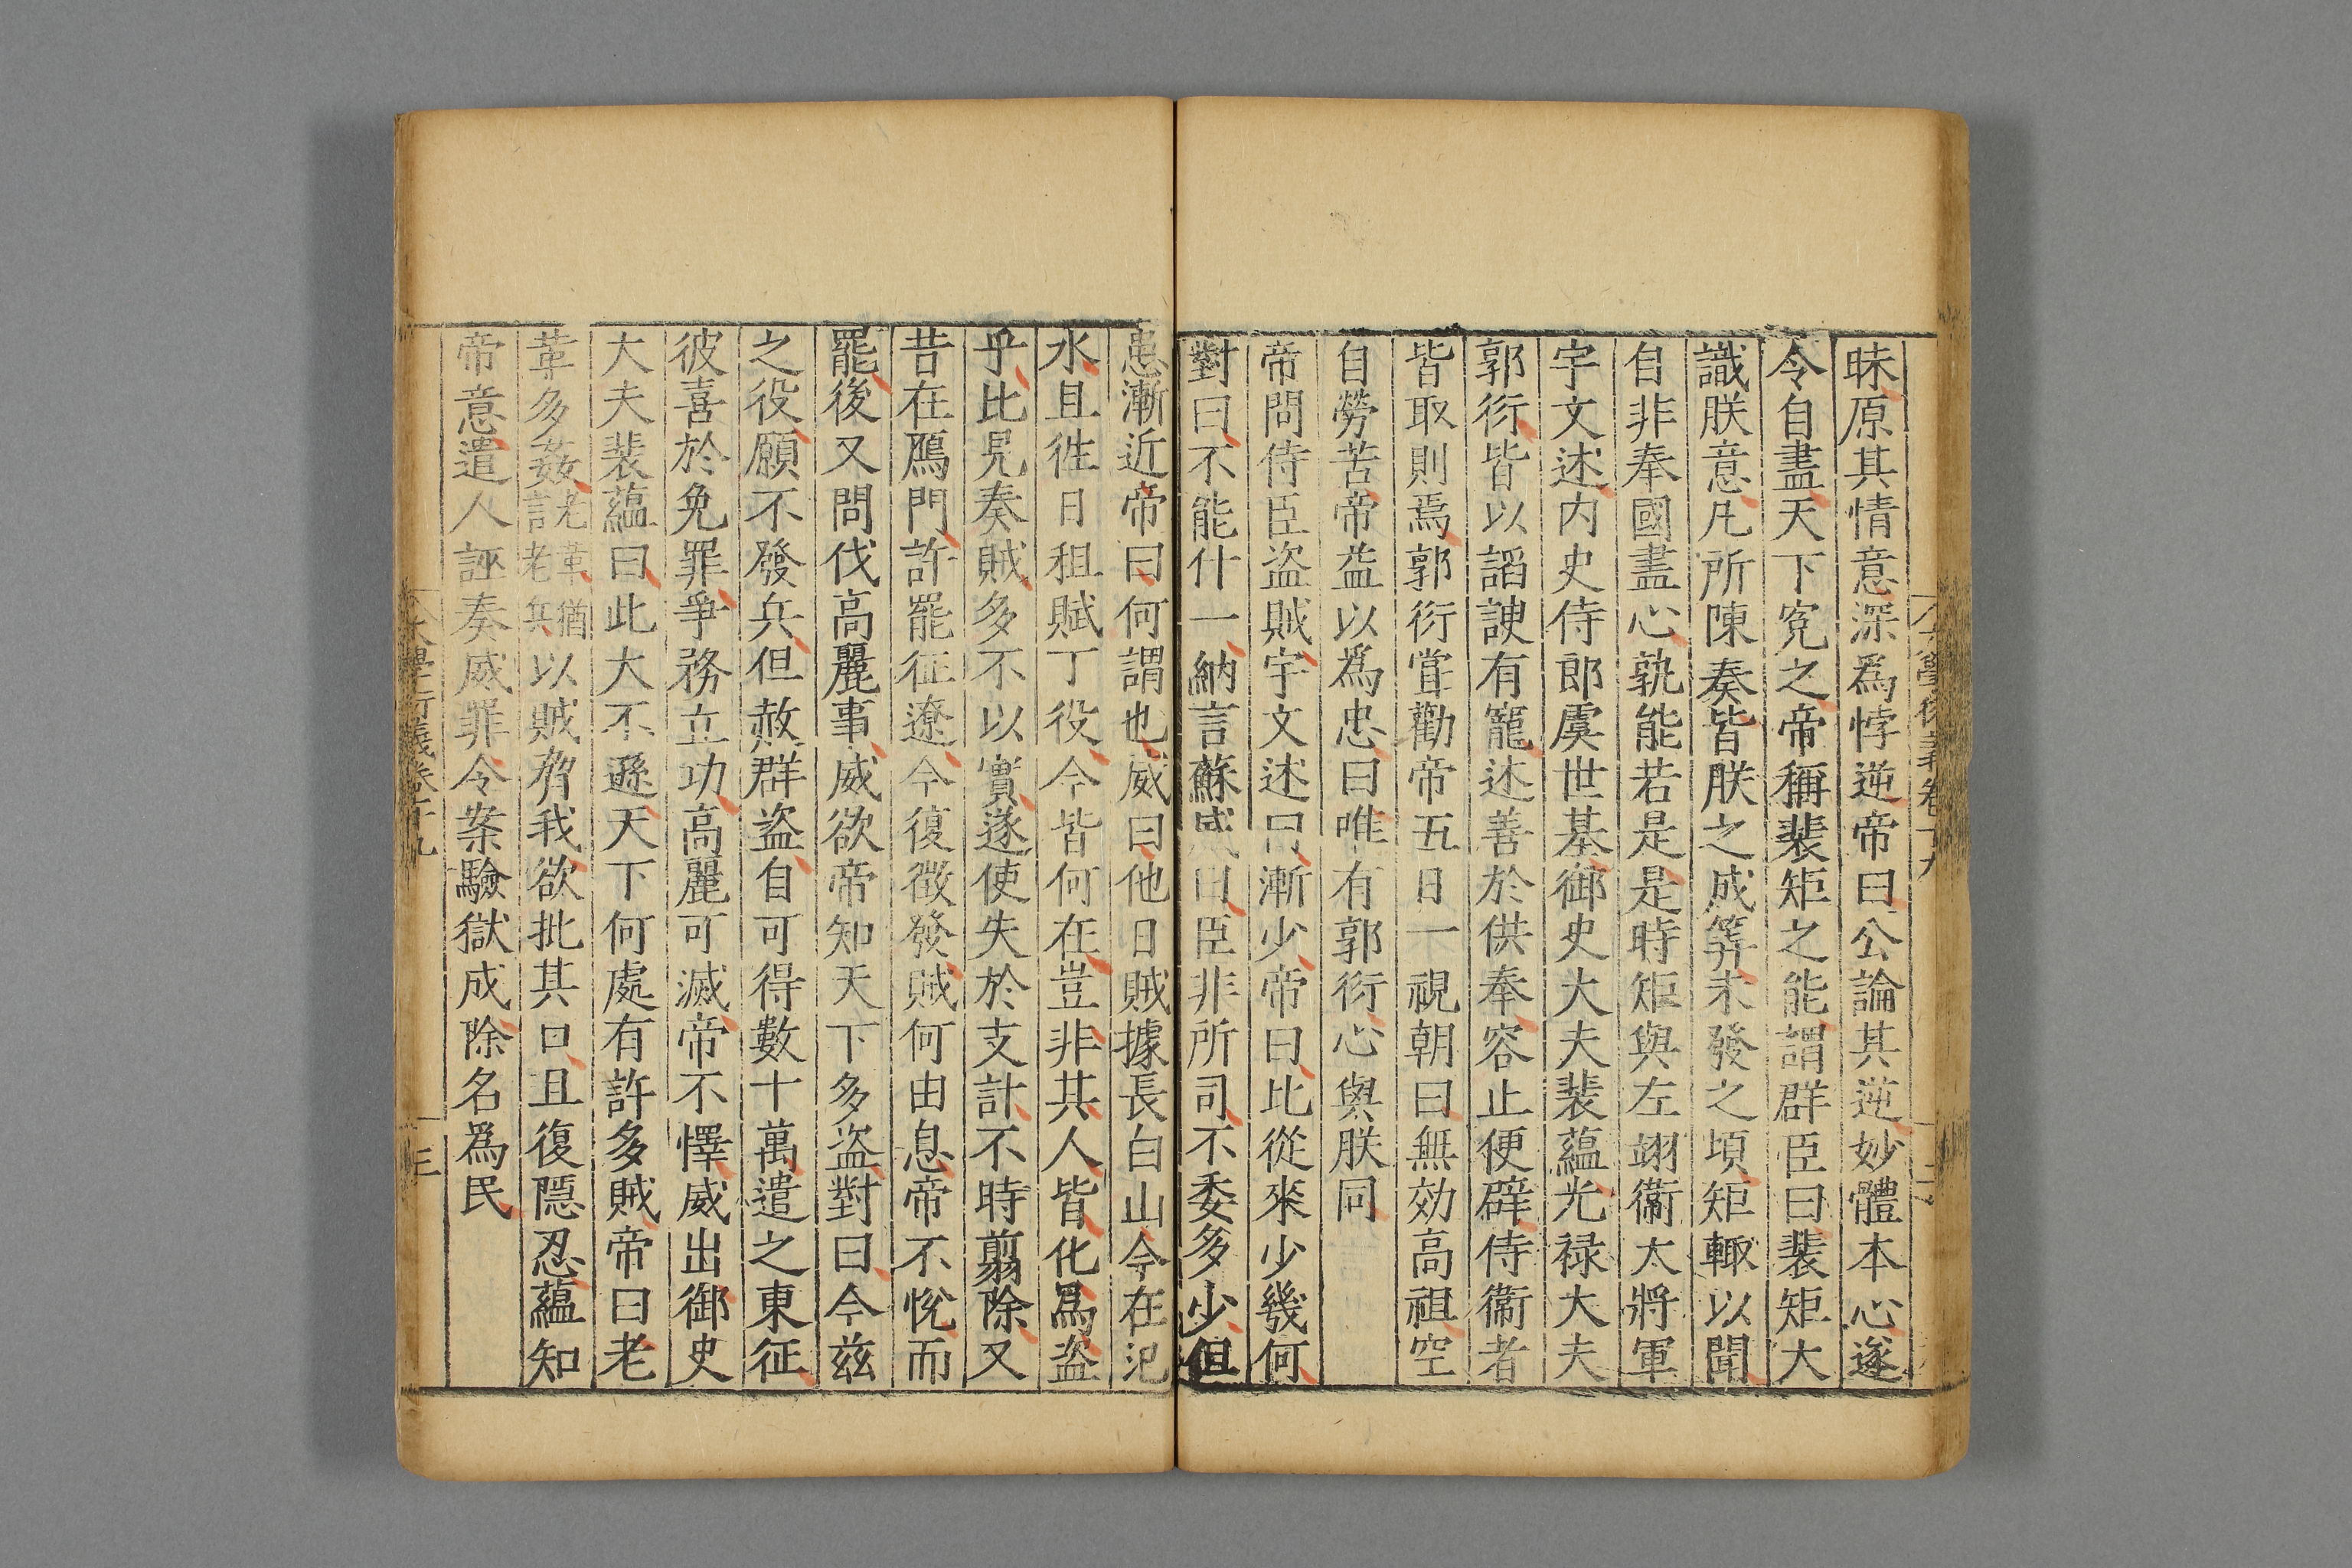 昧原其情意深爲悖逆帝曰公論其逆妙體本心遂
令自盡天下寃之帝稱裴矩之能謂群臣曰裴矩大
識朕意凡所陳奏皆朕之成筭未發之頃矩輙以聞
自非奉國盡心孰能若是是時矩與左翊衞大將軍
宇文述内史侍郎虞世基御史大夫裴蘊光禄大夫
郭衍皆以謟諛有寵述善於供奉容止便辟侍衞者
皆取則焉郭衍甞勸帝五日一視朝曰無効高祖空
自勞苦帝益以爲忠曰唯有郭衍心與朕同
帝問侍臣盗賊宇文述曰漸少帝曰比從來少幾何
對曰不能什一納言蘇威曰臣非所司不委多少但
患漸近帝曰何謂也威曰他日賊據長白山今在汜
水且徃日租賦丁役今皆何在豈非其人皆化爲盗
乎比見奏賊多不以實遂使失於支計不時翦除又
昔在鴈門許罷征遼今復徵發賊何由息帝不悅而
罷後又問伐高麗事威欲帝知天下多盗對曰今兹
之役願不發兵但赦群盗自可得數十萬遣之東征
彼喜於免罪爭務立功高麗可滅帝不懌威出御史
大夫裴蘊曰此大不遜天下何處有許多賊帝曰老
革多姦言老革猶老兵以賊脅我欲批其口且復隱忍蘊知
帝意遣人誣奏威罪令案驗獄成除名爲民
大學衍義卷十九 三